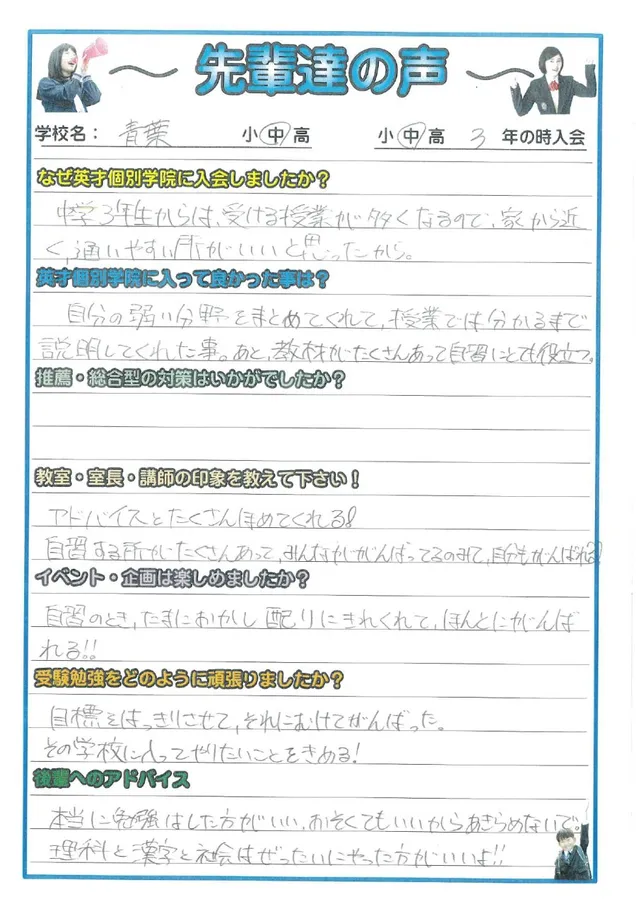 先輩達の声
学校名: 青葉 小 中 高 小 中 高 3 年の時入会
なぜ英才個別学院に入会しましたか?
中学3年生からは、受ける授業が多くなるので、家から近
く、通いやすい所がいいと思ったから。
英才個別学院に入って良かった事は?
自分の弱い分野をまとめてくれて、授業では分かるまで
説明してくれた事。あと、教材がたくさんあって自習にとても役立つ。
推薦・総合型の対策はいかがでしたか?
教室・室長・講師の印象を教えて下さい!
アドバイスとたくさんほめてくれる!
自習する所がたくさんあって、みんながんばってるのみて、自分もがんばれる!
イベント・企画は楽しめましたか?
自習のとき、たまにおかし配りにきれくれて、ほんとにがんば
れる!!
受験勉強をどのように頑張りましたか?
目標をはっきりさせて、それにむけてがんばった。
その学校に入ってやりたいことをきめる!
後輩へのアドバイス
本当に勉強はした方がいい、おそくてもいいからあきらめないで。
理科と漢字と社会はぜったいにやった方がいいよ!!